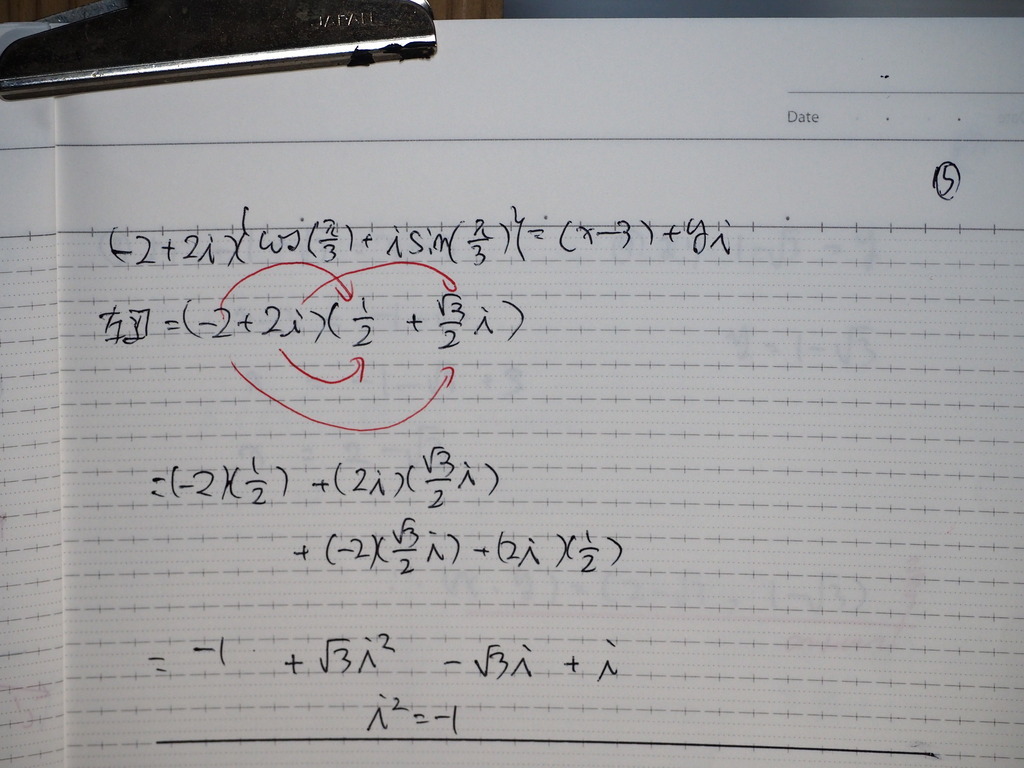 JAPAN
Date
⑤
(-2+2i)×{cos(π/3)+isin(π/3)}=(x-3)+yi
左辺=(-2+2i)(1/2+√3/2 i)
=(-2)(1/2)+(2i)(√3/2 i)
+(-2)(√3/2 i)+(2i)(1/2)
=-1+√3i²-√3i+i
i²=-1